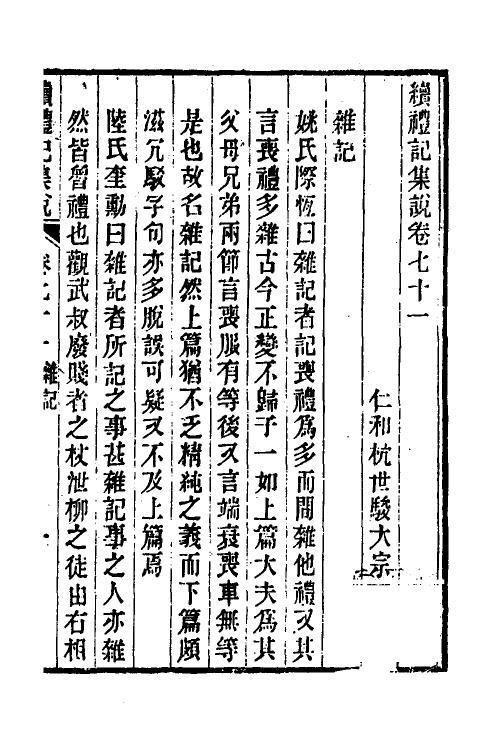 續禮記集說卷七十一
仁和杭世駿大宗
雜記
姚氏際恆曰雜記者記喪禮爲多而間雜他禮又其
言喪禮多雜古今正變不歸于一如上篇大夫爲其
父母兄弟兩節言喪服有等後又言端衰喪車無等
是也故名雜記然上篇猶不乏精純之義而下篇頗
滋冗駁字句亦多脫誤可疑又不及上篇焉
陸氏奎勳曰雜記者所記之事甚雜記事之人亦雜
然皆魯禮也觀武叔廢賤者之杖泄柳之徒由右相
續禮記集說
卷七十一 雜記
一